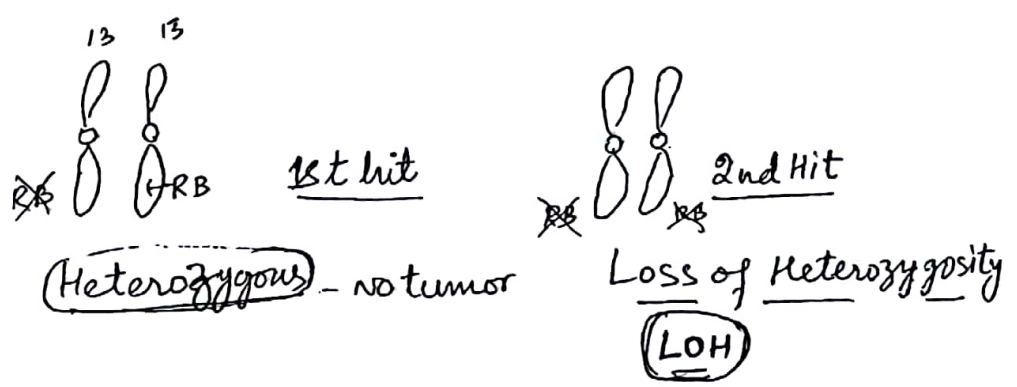 13 13
RB RB 1st hit
Heterozygous - no tumor
2nd Hit
RB RB
Loss of Heterozygosity
LOH